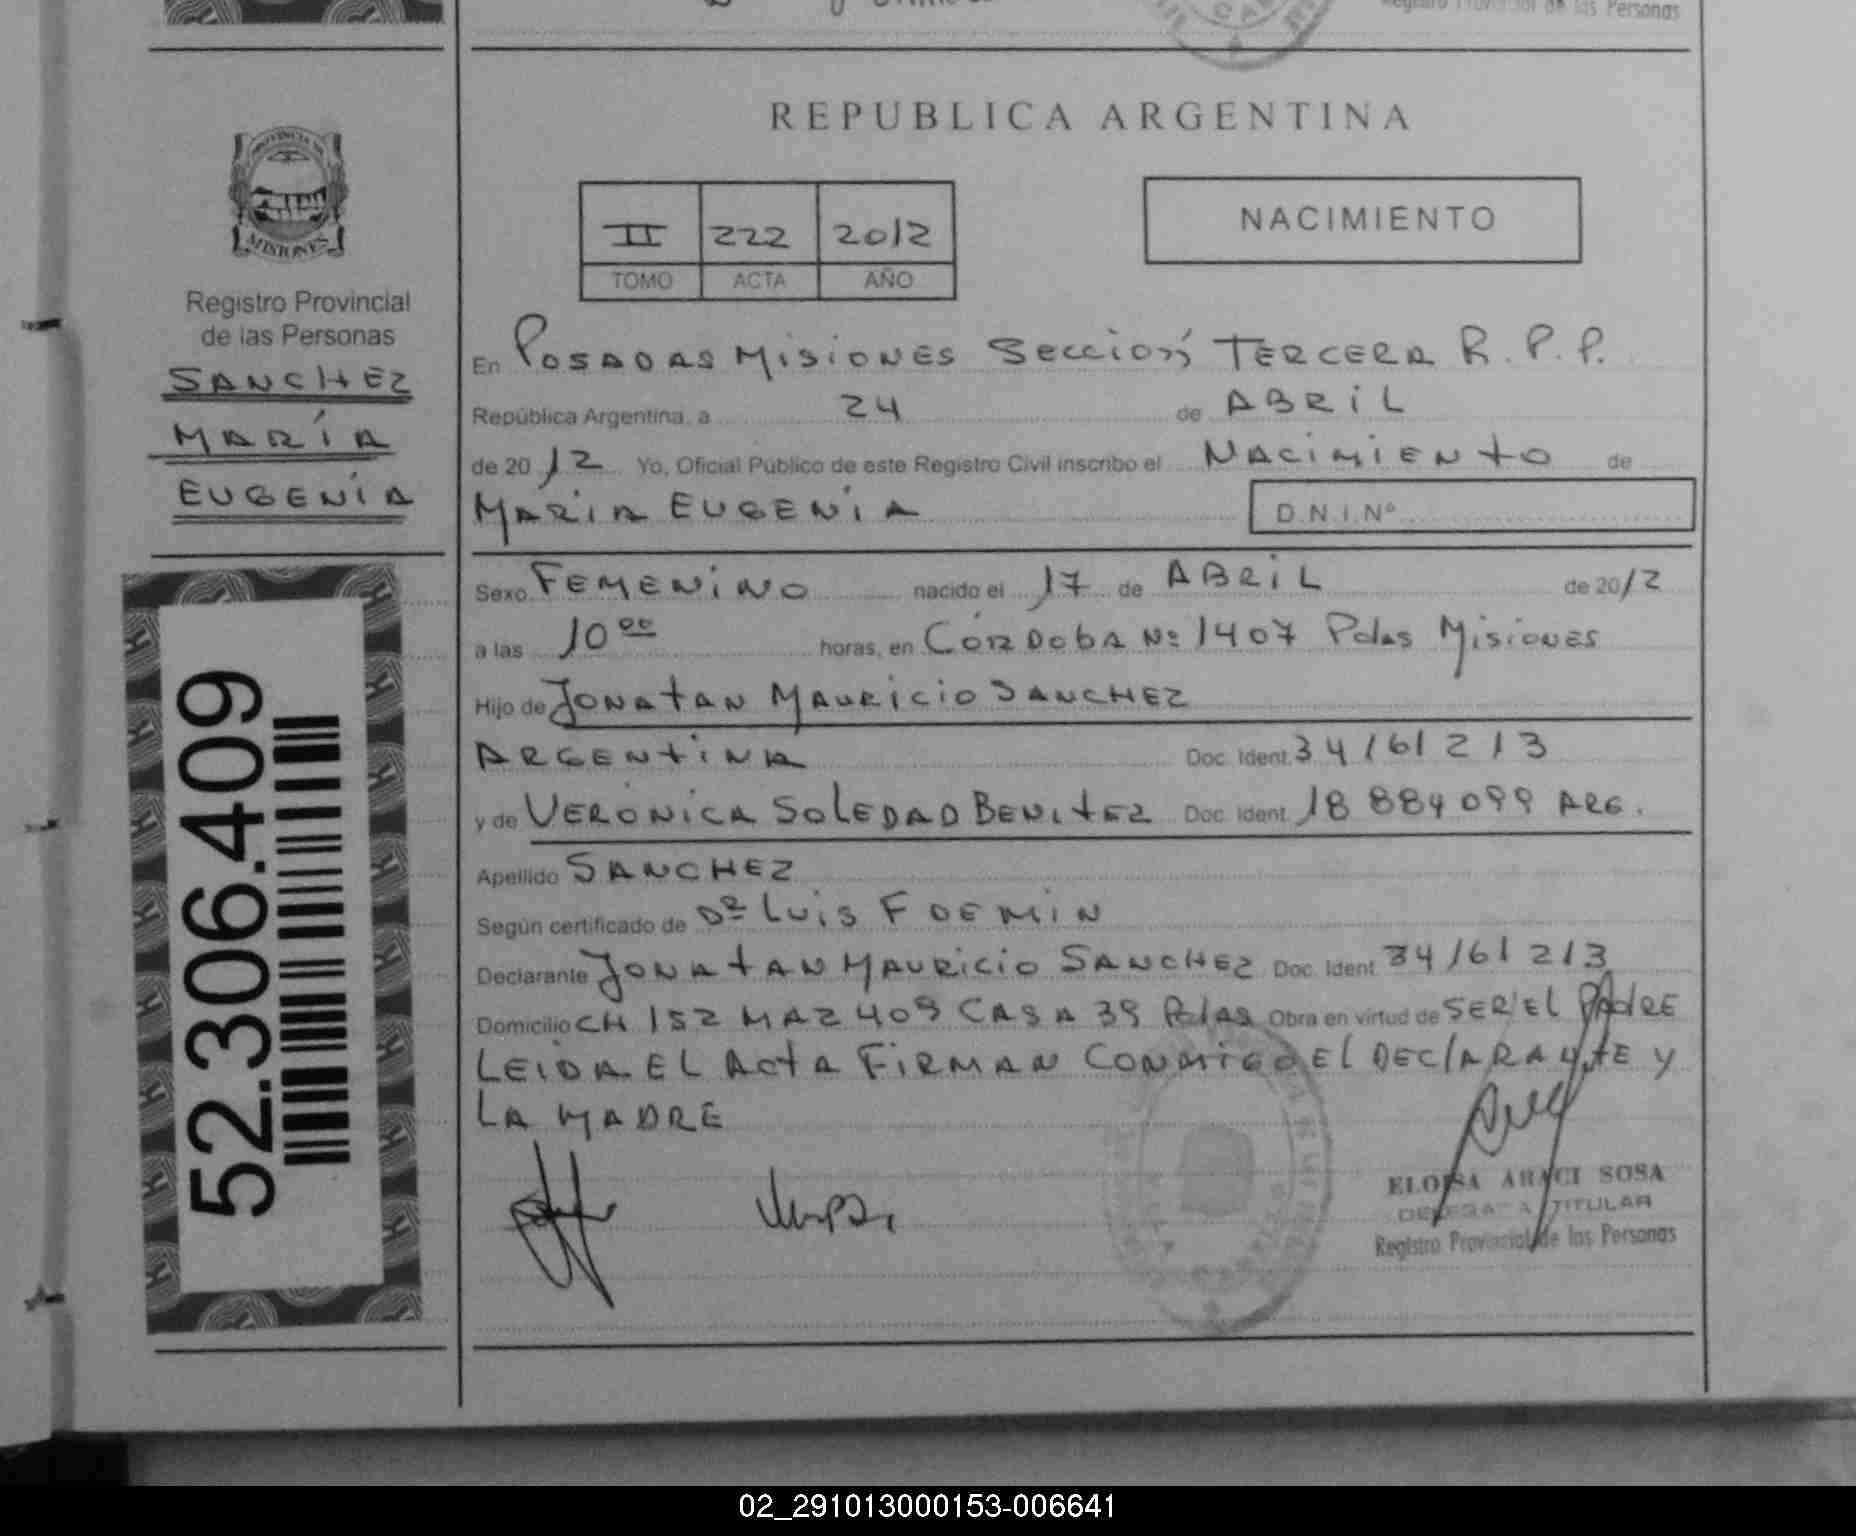 Registro Provincial de las Personas
REPUBLICA ARGENTINA
NACIMIENTO
II 222 2012
TOMO ACTA AÑO
PROVINCIA DE
MISIONES
Registro Provincial
de las Personas
SANCHEZ
MARÍA
EUGENÍA
52.306.409
En POSADAS MISIONES SECCIÓN TERCERA R.P.P.
República Argentina, a 24 de ABRIL
de 2012 Yo, Oficial Público de este Registro Civil inscribo el NACIMIENTO de
MARÍA EUGENÍA D.N.I.Nº
Sexo FEMENINO nacido el 17 de ABRIL de 2012
a las 10 00 horas, en CÓRDOBA Nº 1407 Pdas MISIONES
Hijo de JONATAN MAURICIO SANCHEZ
ARGENTINA Doc. Ident. 34161213
y de VERÓNICA SOLEDAD BENITEZ Doc. Ident. 18 884 099 ARG.
Apellido SANCHEZ
Según certificado de DR LUIS F DEMIN
Declarante JONATAN MAURICIO SANCHEZ Doc. Ident. 34161213
Domicilio CH 152 MAZ 409 CASA 39 Pdas Obra en virtud de SER EL PADRE
LEIDA EL ACTA FIRMAN CONMIGO EL DECLARANTE Y
LA MADRE
ELOISA ARACI SOSA
DELEGADA TITULAR
Registro Provincial de las Personas
02_291013000153-006641